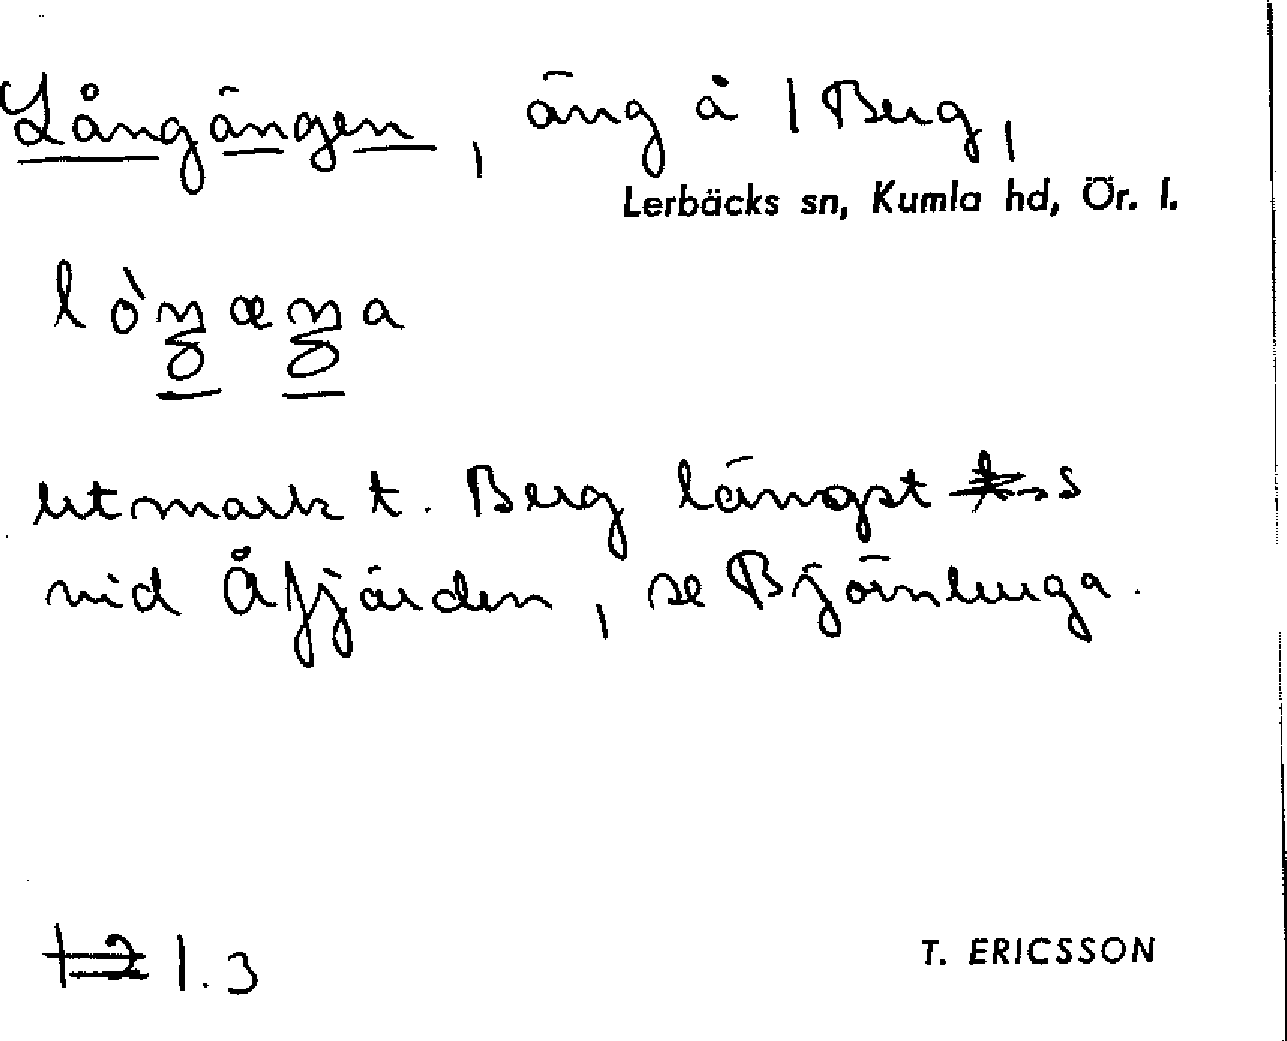 Långängen, äng å 1 Berg,
Lerbäcks sn, Kumla hd, Ör. l.
utmark t. Berg längst s
vid Åfjärden, se Björnlunga.
1.3
T. ERICSSON